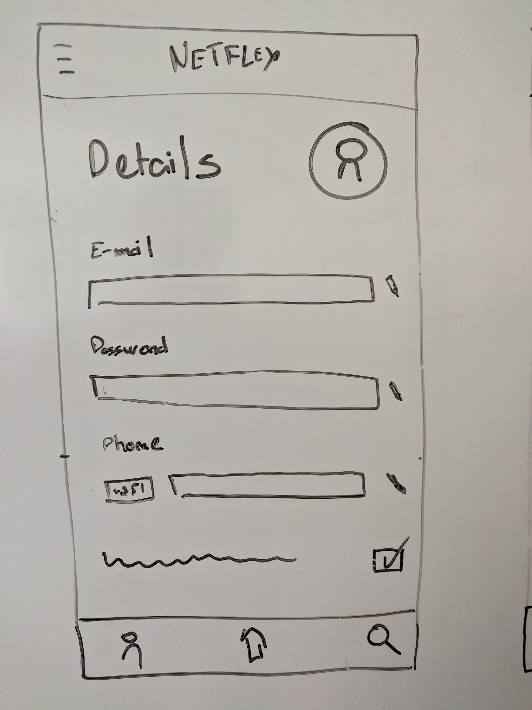 NETFLEX
Details
E-mail
Password
Phone